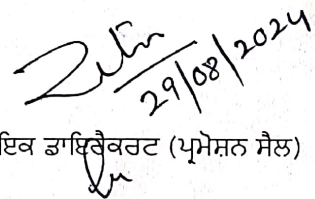 29/08/2024
ਇਕ ਡਾਇਰੈਕਰਟ (ਪ੍ਰਮੋਸ਼ਨ ਸੈਲ)